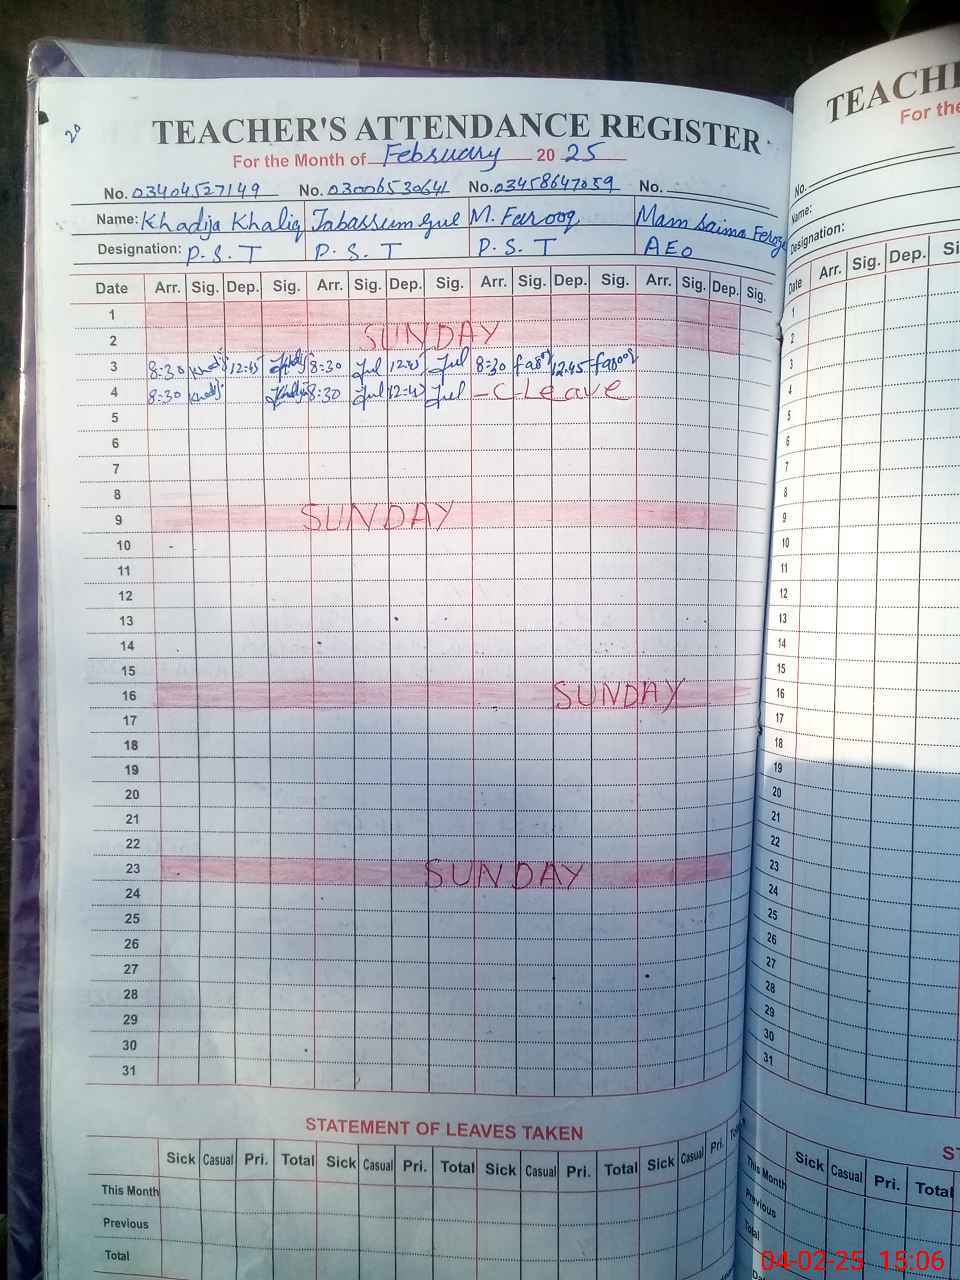 20
TEACHER'S ATTENDANCE REGISTER
For the Month of February 20 25
No. 03404527149 No. 03006530641 No. 03458647059 No.
Name: Khadija Khaliq Tabassum Gul M. Farooq Mam Saima Feroze
Designation: P.S.T P.S.T P.S.T AEO
Date Arr. Sig. Dep. Sig. Arr. Sig. Dep. Sig. Arr. Sig. Dep. Sig. Arr. Sig. Dep. Sig.
1
2 SUNDAY
3 8:30 12:45 8:30 Gul 12:45 Gul 8:30 farooq 12.45 farooq
4 8:30 8:30 Gul 12:45 Gul - C Leave
5
6
7
8
9 SUNDAY
10
11
12
13
14
15
16 SUNDAY
17
18
19
20
21
22
23 SUNDAY
24
25
26
27
28
29
30
31
STATEMENT OF LEAVES TAKEN
Sick Casual Pri. Total Sick Casual Pri. Total Sick Casual Pri. Total Sick Casual Pri. Total
This Month
Previous
Total
TEACHE
For the
No.
Name:
Designation:
Date Arr. Sig. Dep. Si
1
2
3
4
5
6
7
8
9
10
11
12
13
14
15
16
17
18
19
20
21
22
23
24
25
26
27
28
29
30
31
ST
Sick Casual Pri. Total
This Month
Previous
Total
04-02-25 15:06